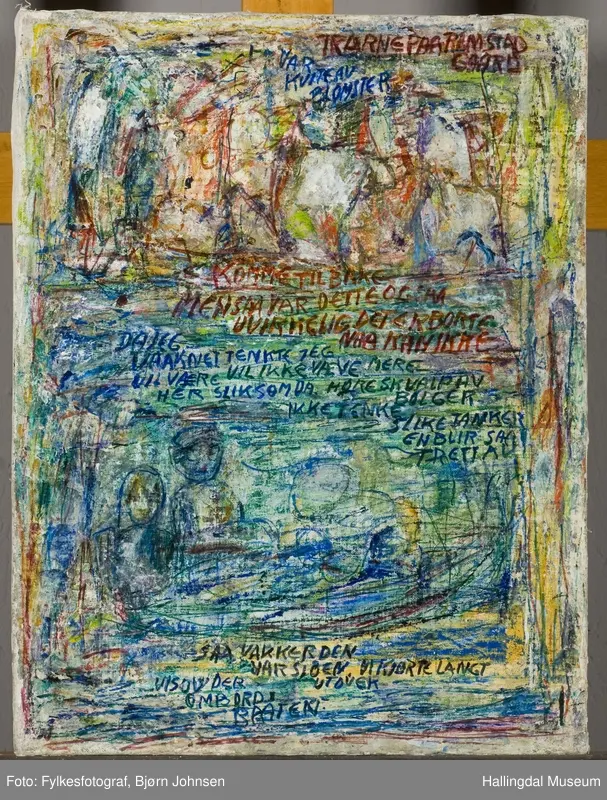 TRÆRNE PAA REMSTAD
GAARD
VAR
HVITE AV
BLOMSTER
KOMME TILBAKE
MEN SAA VAR DETTE OGSAA
UVIRKELIG DET ER BORTE
NAA KAN IKKE
DA JEG
VAAKNET TENKTE JEG
VIL IKKE VÆVE MERE
VIL VÆRE
HER SLIK SOM DA HØRE SKVALP AV
BØLGER
IKKE TENKE
SLIKE TANKER
EN BLIR SAA
TRETT AV
SAA VAKKER DEN
VAR SJØEN VI KJØRTE LANGT
UTOVER
VI SOV DER
OMBORD I
BAATEN.
Foto: Fylkesfotograf, Bjørn Johnsen
Hallingdal Museum